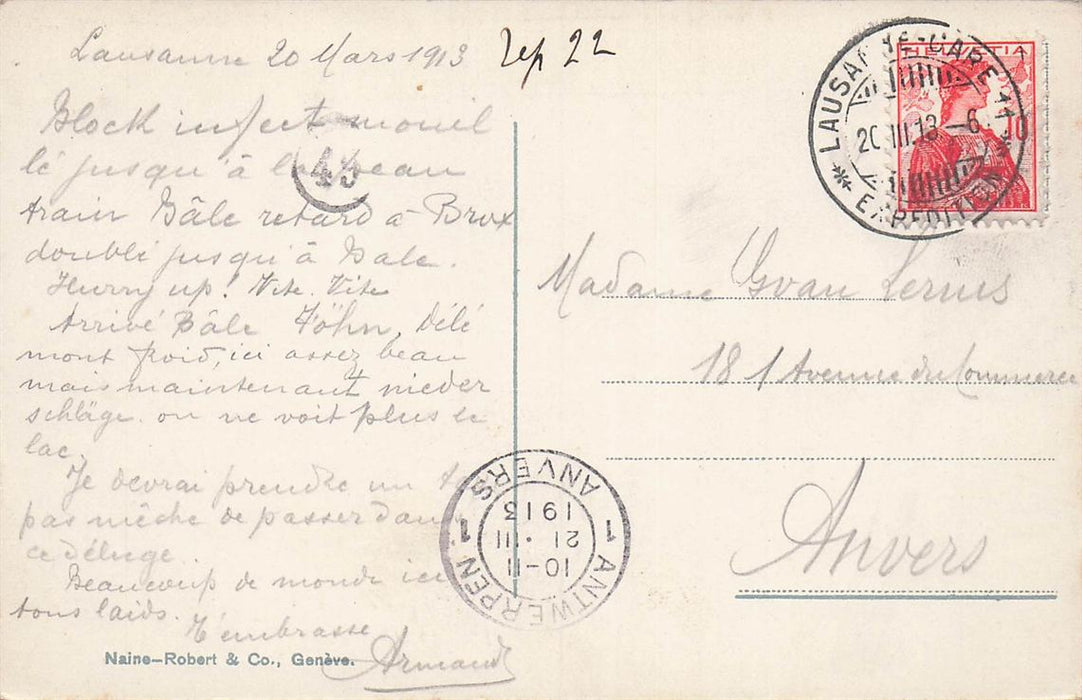 Lausanne 20 Mars 1913
rep 22
Block infect mouil
lé jusqu'à la peau
train Bâle retard à Brux
doublé jusqu'à Bale.
Hurry up! Vite. Vite
Arrivé Bâle Föhn, Délé
mont froid, ici assez beau
mais maintenant nieder
schläge. on ne voit plus le
lac.
Je devrai prendre un
pas mèche de passer dans
ce déluge.
Beaucoup de monde ici
tous laids.
T'embrasse
Armand
Naine-Robert & Co., Genève.
43
HELVETIA
10
LAUSANNE-GARE 11
EXPEDITION
20.III.13 -6
Madame Yvan
181 Avenue du Commerce
Anvers
1 ANTWERPEN 1 ANVERS
10-11
21.III
1913